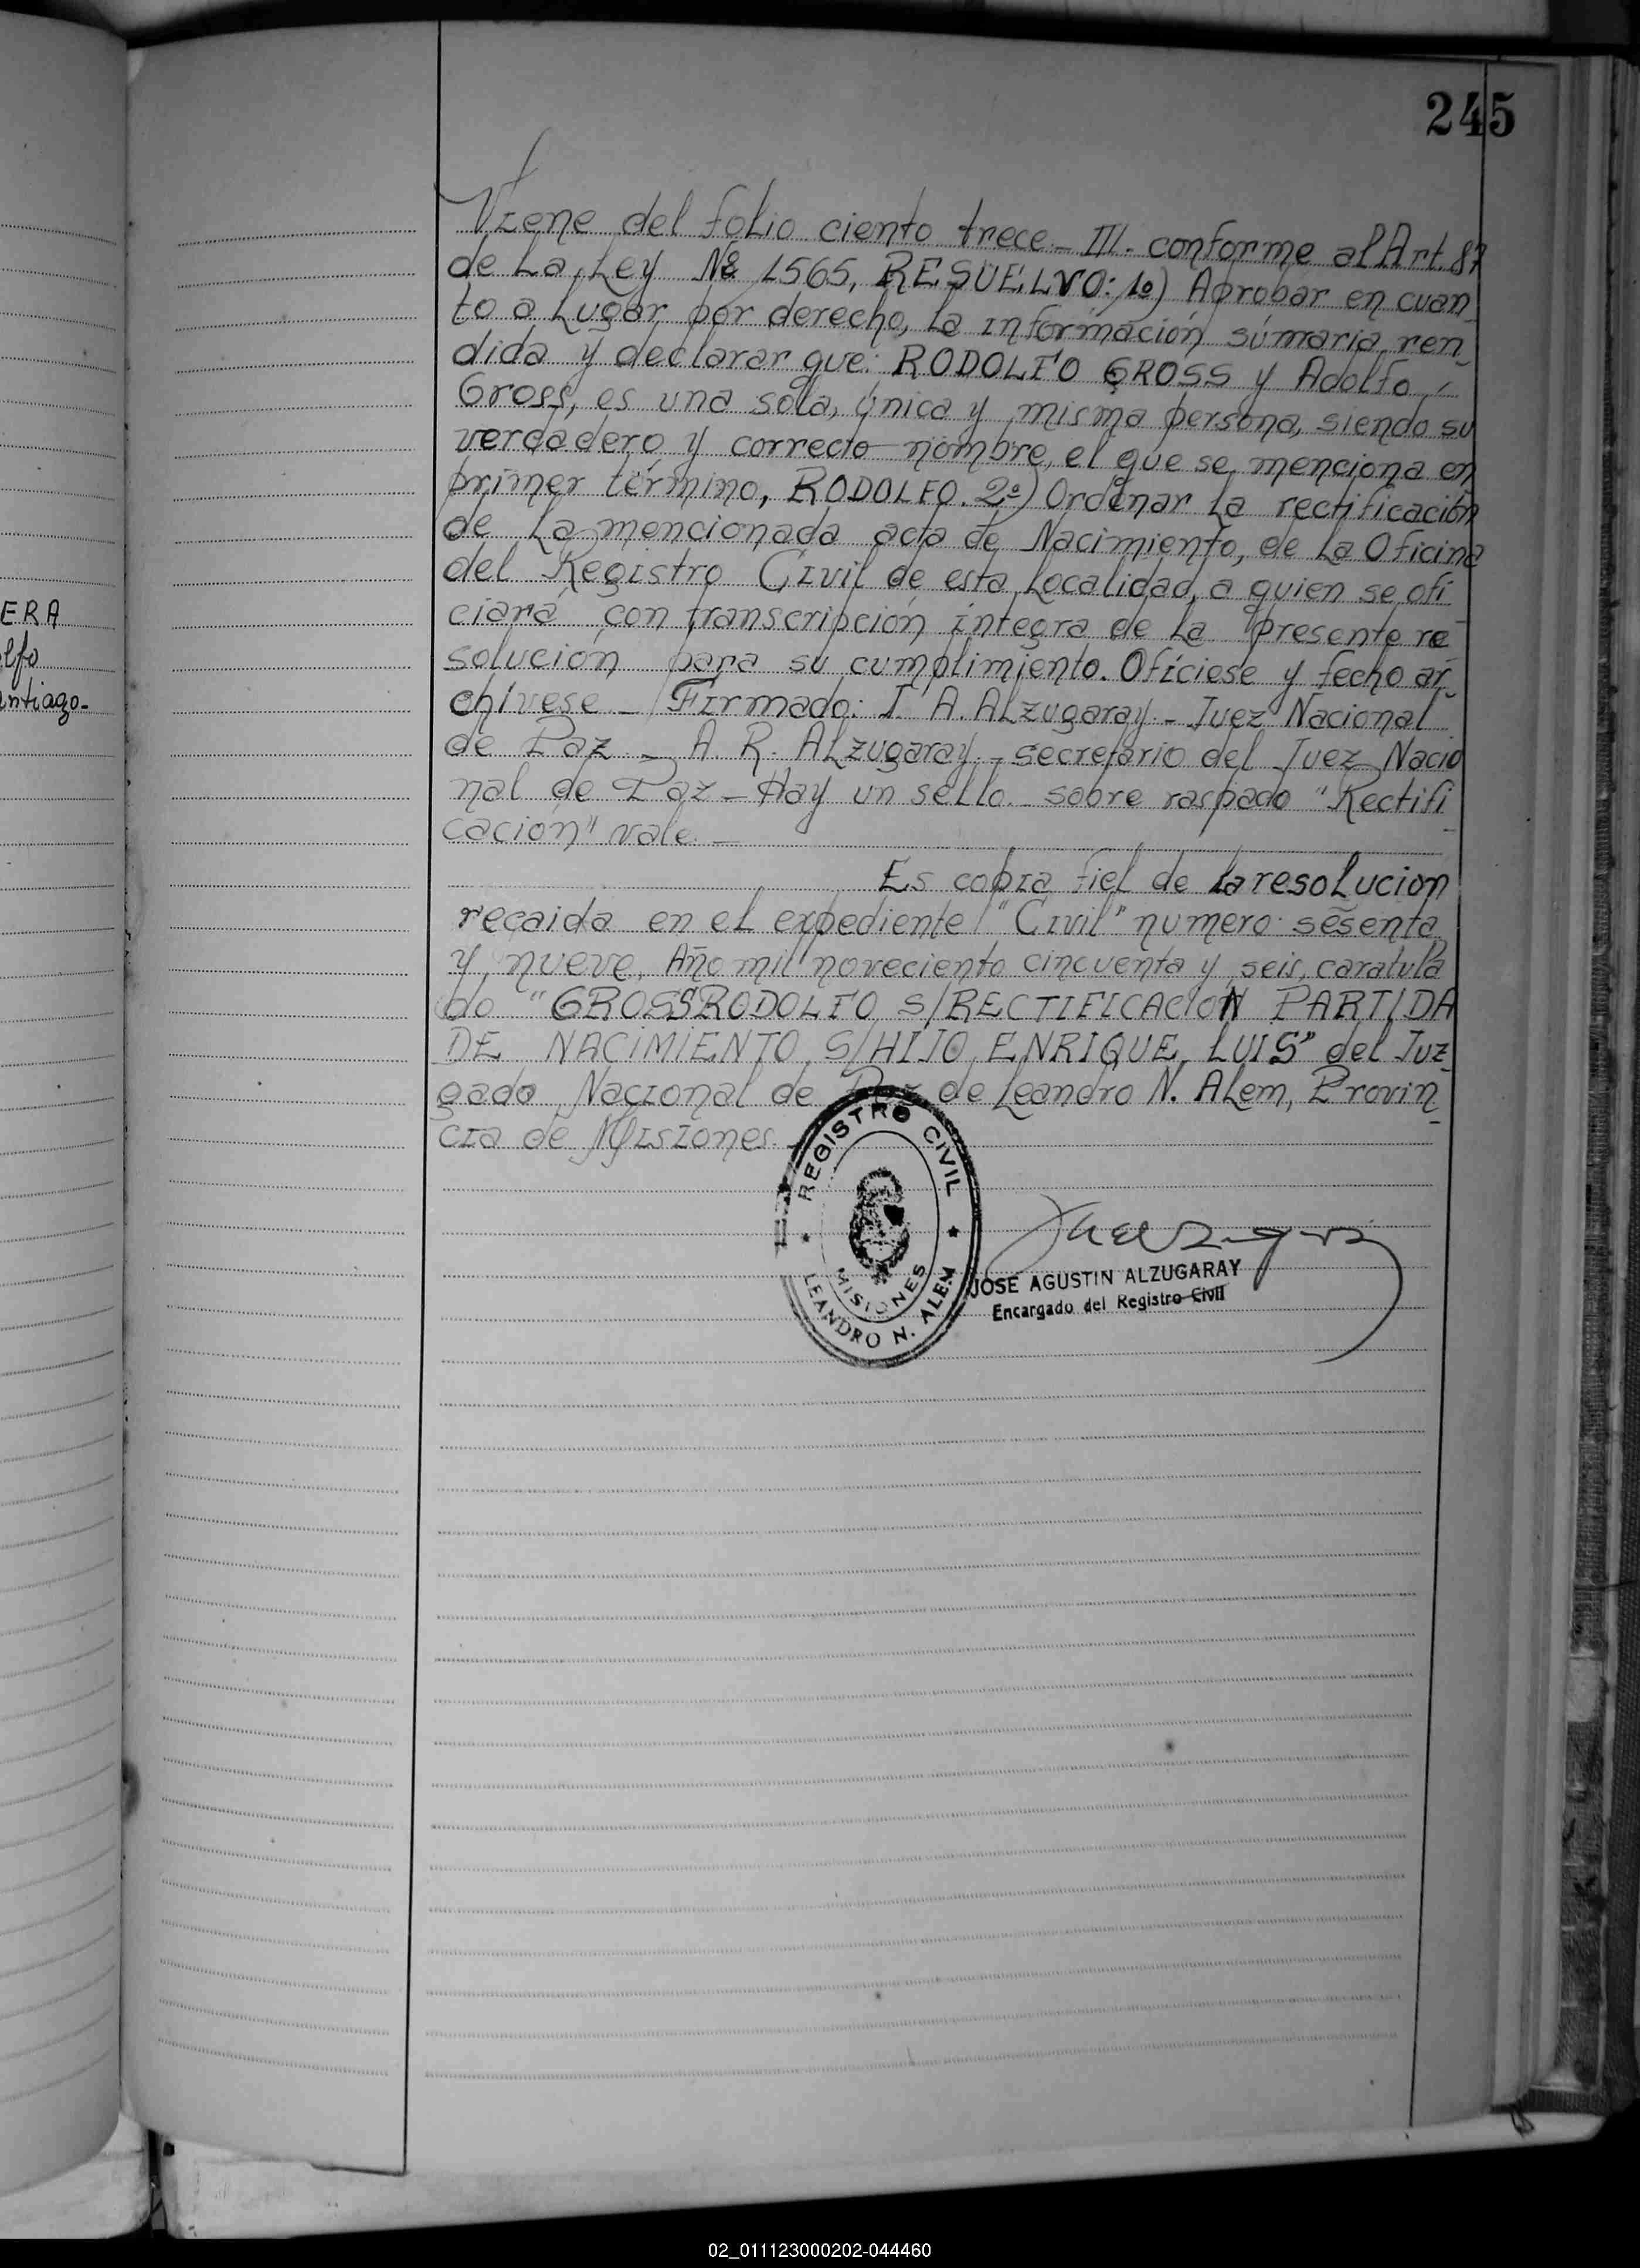 245
Viene del folio ciento trece.- III.- conforme al Art. 87
de La Ley Nº 1565, RESUELVO: 1º) Aprobar en cuan
to a Lugar por derecho, La información sumaria ren
dida y declarar que: RODOLFO GROSS y Adolfo
Gross, es una sola, única y misma persona, siendo su
verdadero y correcto nombre, el que se menciona en
primer término, RODOLFO. 2º) Ordenar La rectificación
de La mencionada acta de Nacimiento, de La Oficina
del Registro Civil de esta Localidad, a quien se ofi
ciará con transcripción íntegra de La presente re
solución para su cumplimiento. Ofíciese y fecho ar
chívese - Firmado: J. A. ALzugaray.- Juez Nacional
de Paz - A. R. ALzugaray.- secretario del Juez Nacio
nal de Paz - Hay un seLLo.- sobre raspado "Rectifi
cación" vale.-
Es copia fiel de la resolucion
recaida en el expediente "Civil" numero sesenta
y nueve, Año mil noveciento cincuenta y seis, caratula
do "GROSS RODOLFO S/RECTIFICACION PARTIDA
DE NACIMIENTO, S/HIJO, ENRIQUE, LUIS" del Juz-
gado Nacional de Paz de Leandro N. ALem, Provin
cia de Misiones.-
REGISTRO CIVIL
MISIONES
LEANDRO N. ALEM
JOSE AGUSTIN ALZUGARAY
Encargado del Registro Civil
ERA
lfo
antiago-
02_011123000202-044460